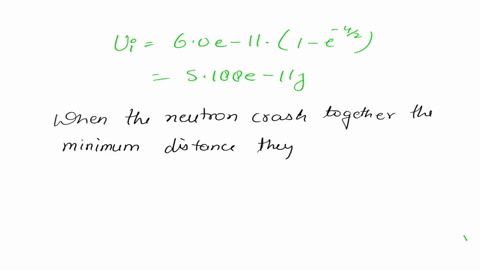 Ui = 6.0e-11. (1-e^-4/2)
= 5.188e-11j
When the neutron crash together the
minimum distance they